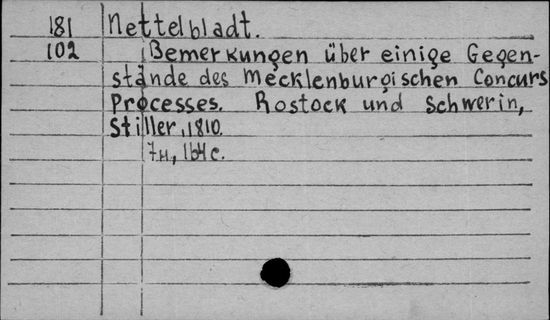 181 Nettelbladt.
102 Bemerkungen über einige Gegen-
stände des Mecklenburgischen Concurs
Processes. Rostock und Schwerin,
Stiller, 1810.
7н., 164 с.